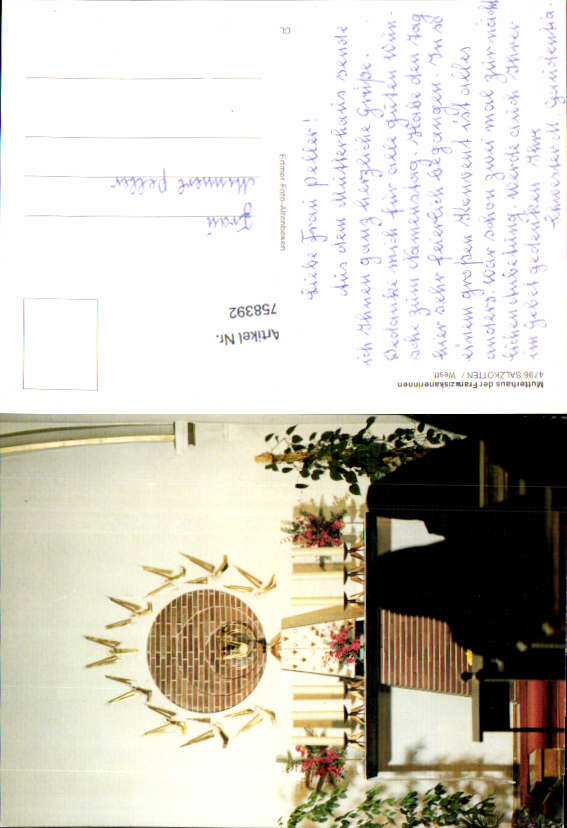 Mutterhaus der Franziskanerinnen
4796 SALZKOTTEN / Westf.
Liebe Frau Peller!
Aus dem Mutterhaus sende
ich Ihnen ganz herzliche Grüße.
Bedanke mich für alle guten Wün-
sche zum Namenstag. Habe den Tag
hier sehr feierlich begangen. In so
einem großen Konvent ist alles
anders. War schon zwei mal zur nächt-
lichen Anbetung. Werde auch Ihrer
im Gebet gedenken. Ihre
Schwester M. Gaudentia.
Emmer-Foto-Altenbeken
CL
Artikel Nr.
758392
Frau
Peller